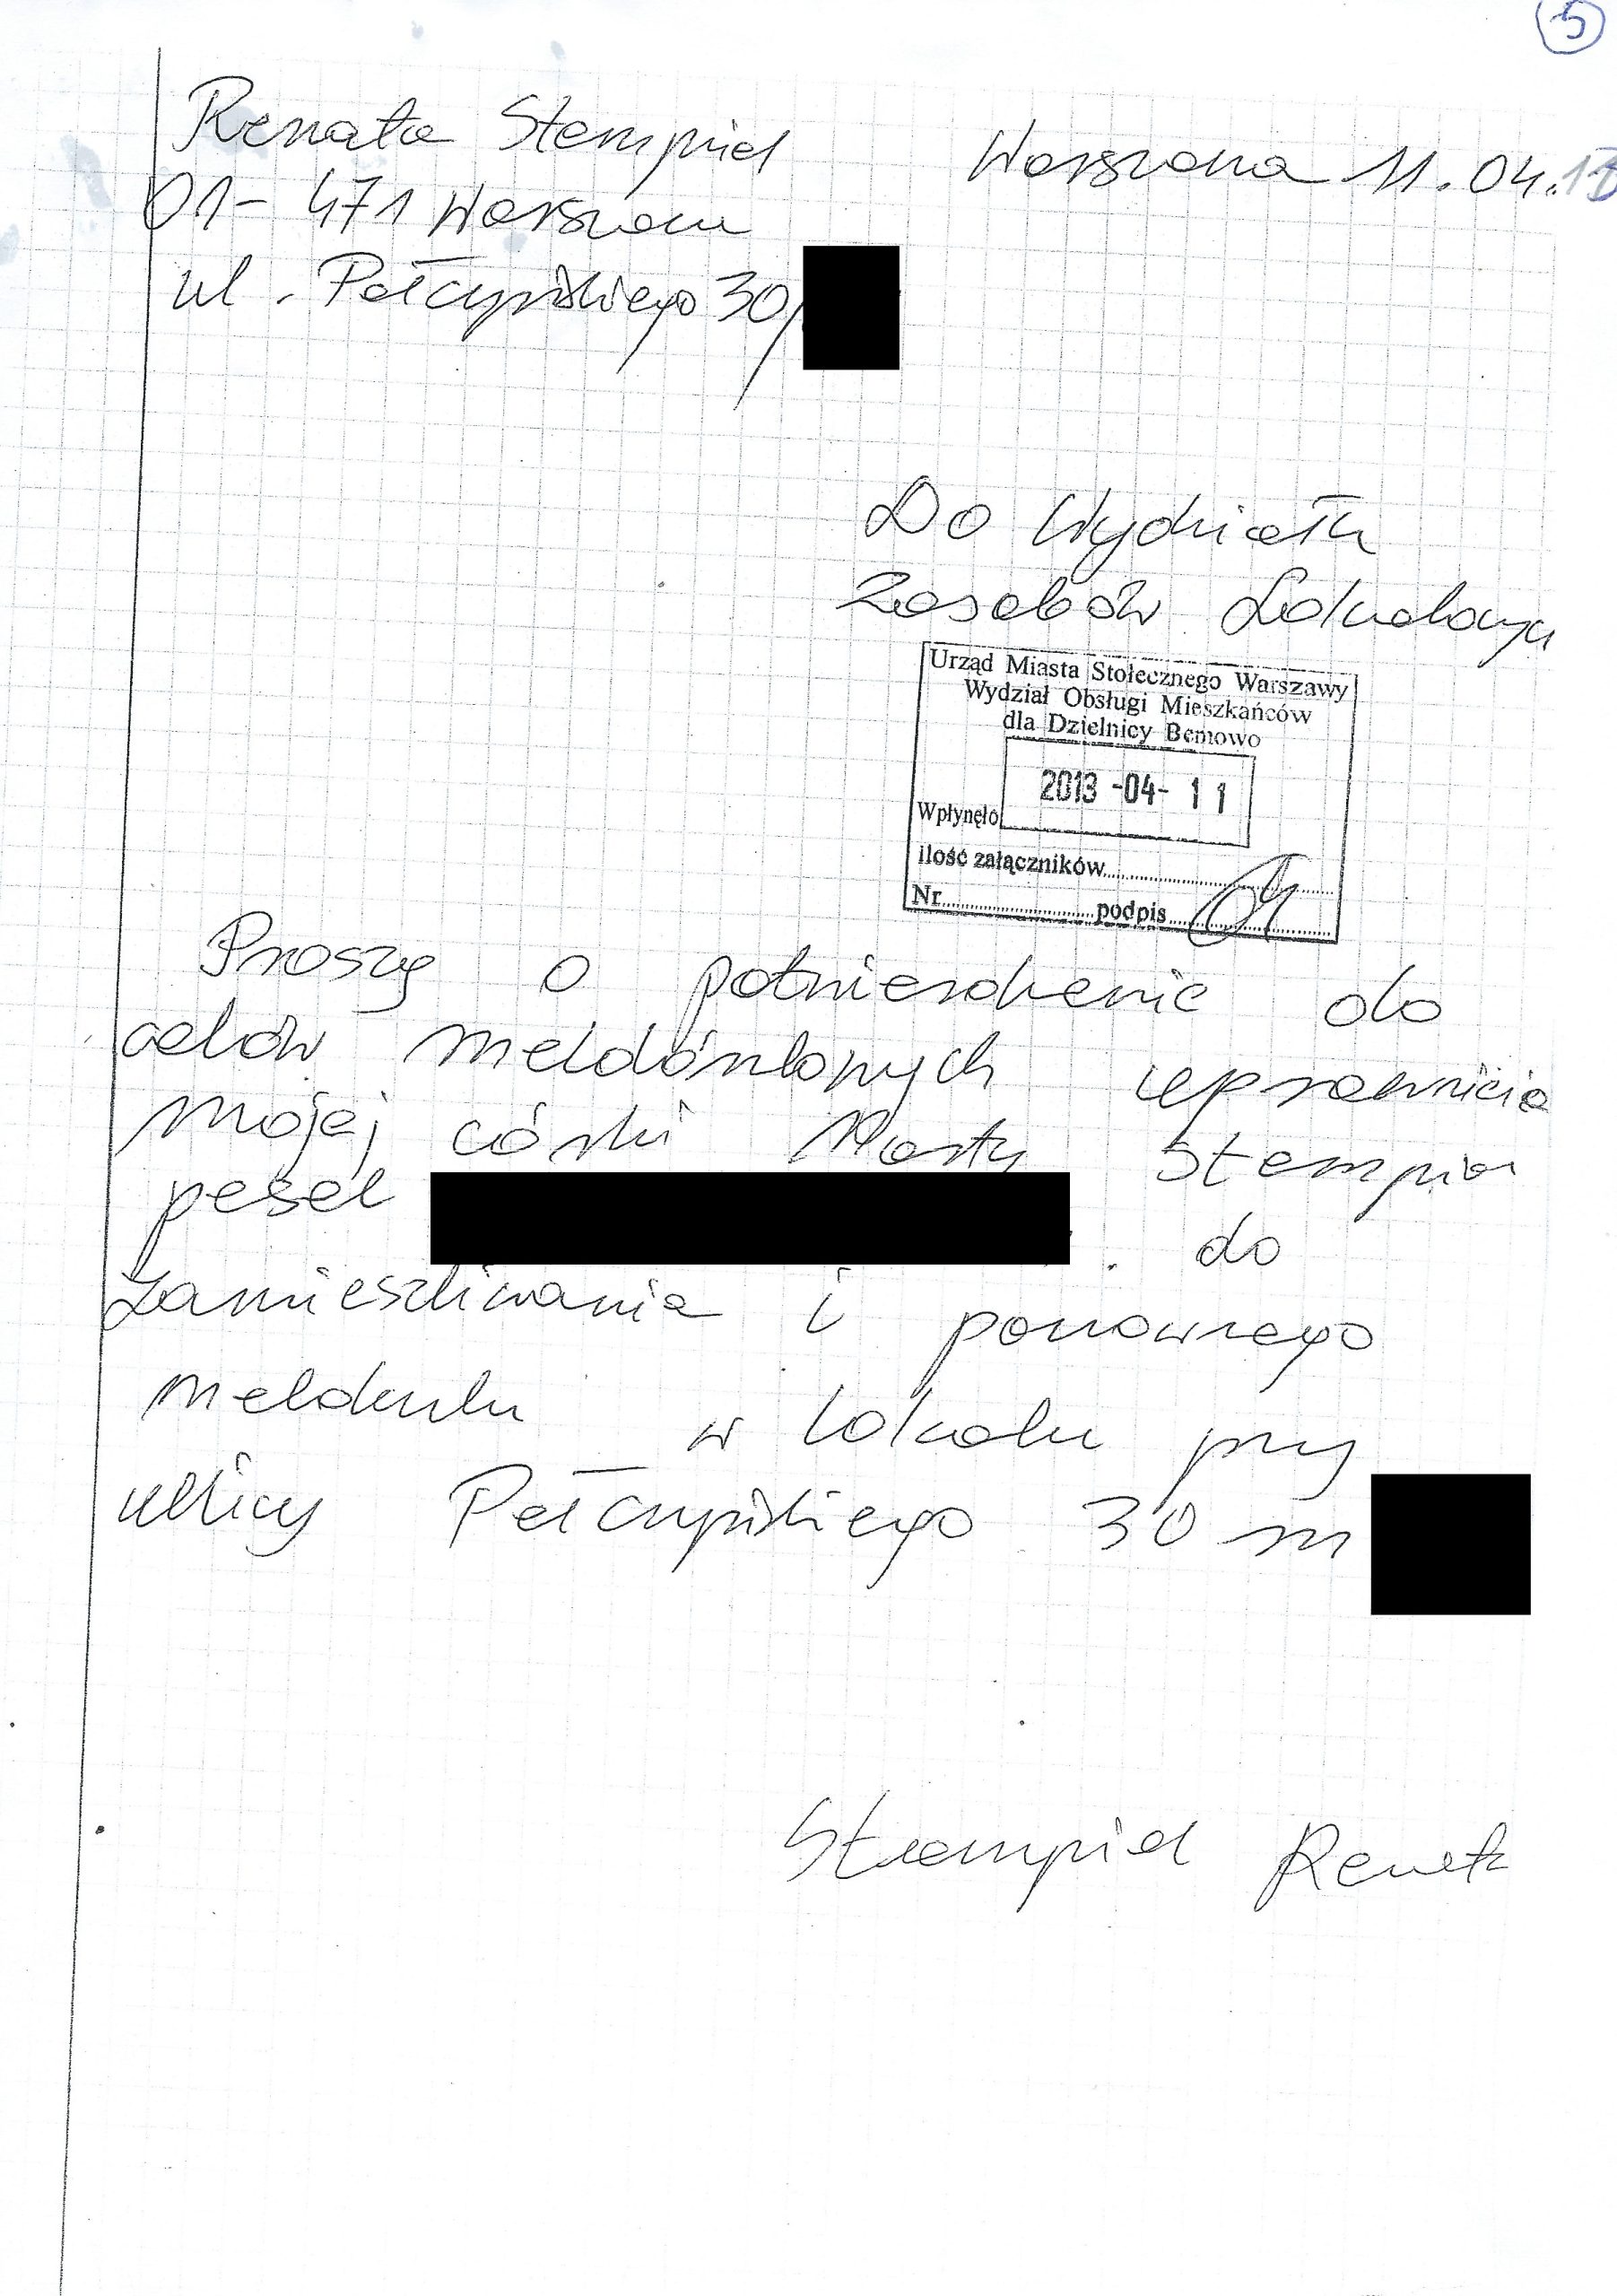 5
Renata Stempień
Warszawa 11.04.13
01-471 Warszawa
ul. Pełczyńskiego 30/
Do Wydziału
Zasobów Lokalowych
Urząd Miasta Stołecznego Warszawy
Wydział Obsługi Mieszkańców
dla Dzielnicy Bemowo
2013-04-11
Wpłynęło
ilość załączników
Nr podpis
Proszę o potwierdzenie do
celów meldónkowych uprawnicia
mojej córki Marty Stempień
pesel . do
zamieszkiwania i ponownego
meldunku w lokalu przy
ullicy Pełczyńskiego 30 m
Stempień Renata